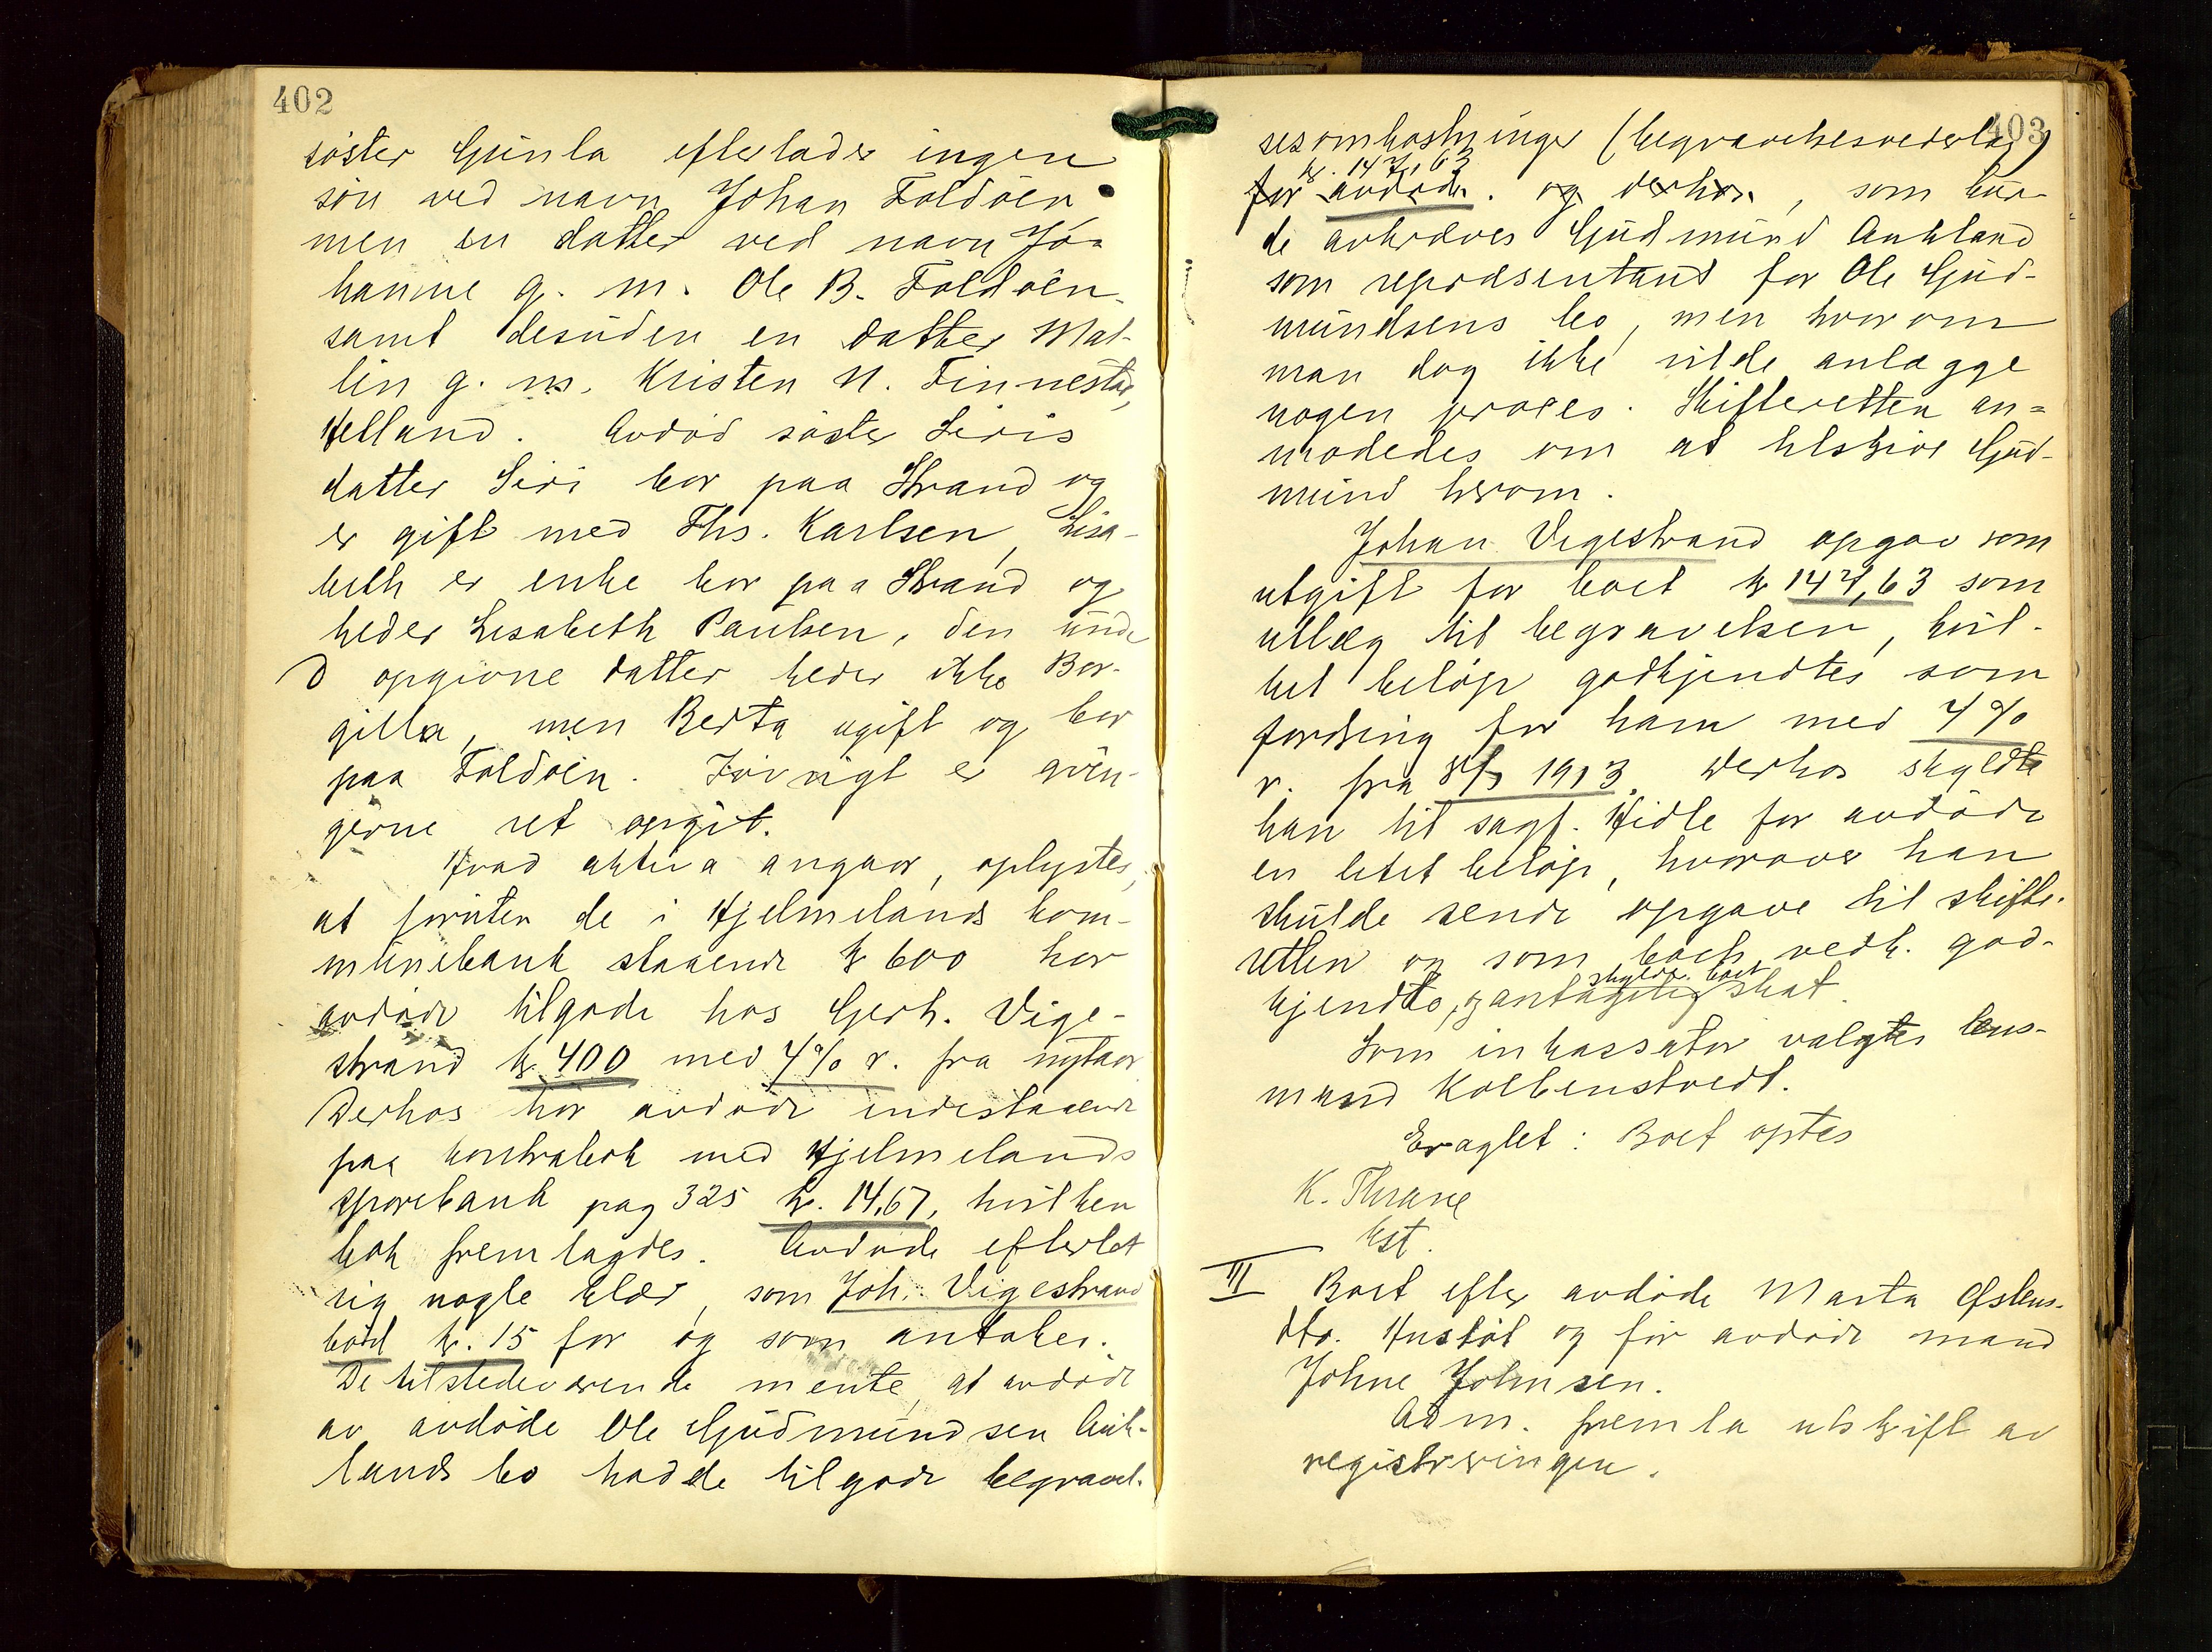 402
søster Gunla efterlader ingen
søn ved navn Johan Foldøen
men en datter ved navn Jo-
hanne g. m. Ole B. Foldøen
samt desuden en datter Mal-
lin g. m. Kristen N. Finnestad,
Helland. Avdød søster Siris
datter Siri bor paa Strand og
er gift med Ths. Karlsen, Lisa-
beth er enke bor paa Strand og
heder Lisabeth Paulsen, den unde
D opgivne datter heder ikke Bor-
gilla, men Berta ugift og bor
paa Foldøen. Forøvrigt er arvin-
gerne ret opgit.
Hvad aktiva angaar, oplystes,
at foruten de i Hjelmelands kom-
munebank staaende kr 600 har
avdøde tilgode hos Gerh. Vige-
strand kr. 400 med 4% r. fra nytaar
Derhos har avdøde indestaaende
paa kontrabok med Hjelmelands
sparebank pag 325 kr. 14,67, hvilken
bok fremlagdes. Avdøde efterlot
sig nogle klær, som Joh. Vigestrand
bød kr. 15 for og som antokes.
De tilstedeværende mente, at avdøde
av avdøde Ole Gudmundsen Auk-
lands bo hadde tilgode begravel-
403
sesomkostninger (begravelsesvederlag)
kr. 147,63
for avdøde. og derhos, som bur-
de avkræves Gudmund Aukland
som repræsentant for Ole Gud-
mundsens bo, men hvorom
man dog ikke vilde anlægge
nogen proces. Skifteretten an-
modedes om at tilskrive Gud-
mund herom.
Johan Vigestrand opgav som
utgift for boet kr 147,63 som
utlæg til begravelsen, hvil-
ket beløp godkjendtes som
fordring for ham med 4%
r. fra 1913. Derhos skyldte
han til sagf. Hidle for avdøde
en litet beløp, hvorover han
skulde sende opgave til skifte-
retten og som boets vedk. god-
skyldte boet
kjendte, og antagelig skat.
Som inkassator valgtes lens-
mand Kolbenstvedt.
Eragtet: Boet optas
K. Thrane
kst.
III Boet efter avdøde Marta Østens-
dtr. Hustøl og før avdøde mand
Johne Johnsen.
Adm. fremla utskrift av
registreringen.